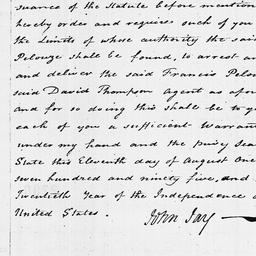 suance of the Statute before mention
hereby order and require each of you
the Limits of whose authority the said
Pelouze shall be found, to arrest an
and deliver the said Francis Pelou
said David Thompson agent as afor
and for so doing this shall be to yo
each of you a sufficient Warrant
under my hand and the privy Sea
State this Eleventh day of August One
seven hundred and ninety five, and
Twentieth Year of the Independence o
United States.
John Jay